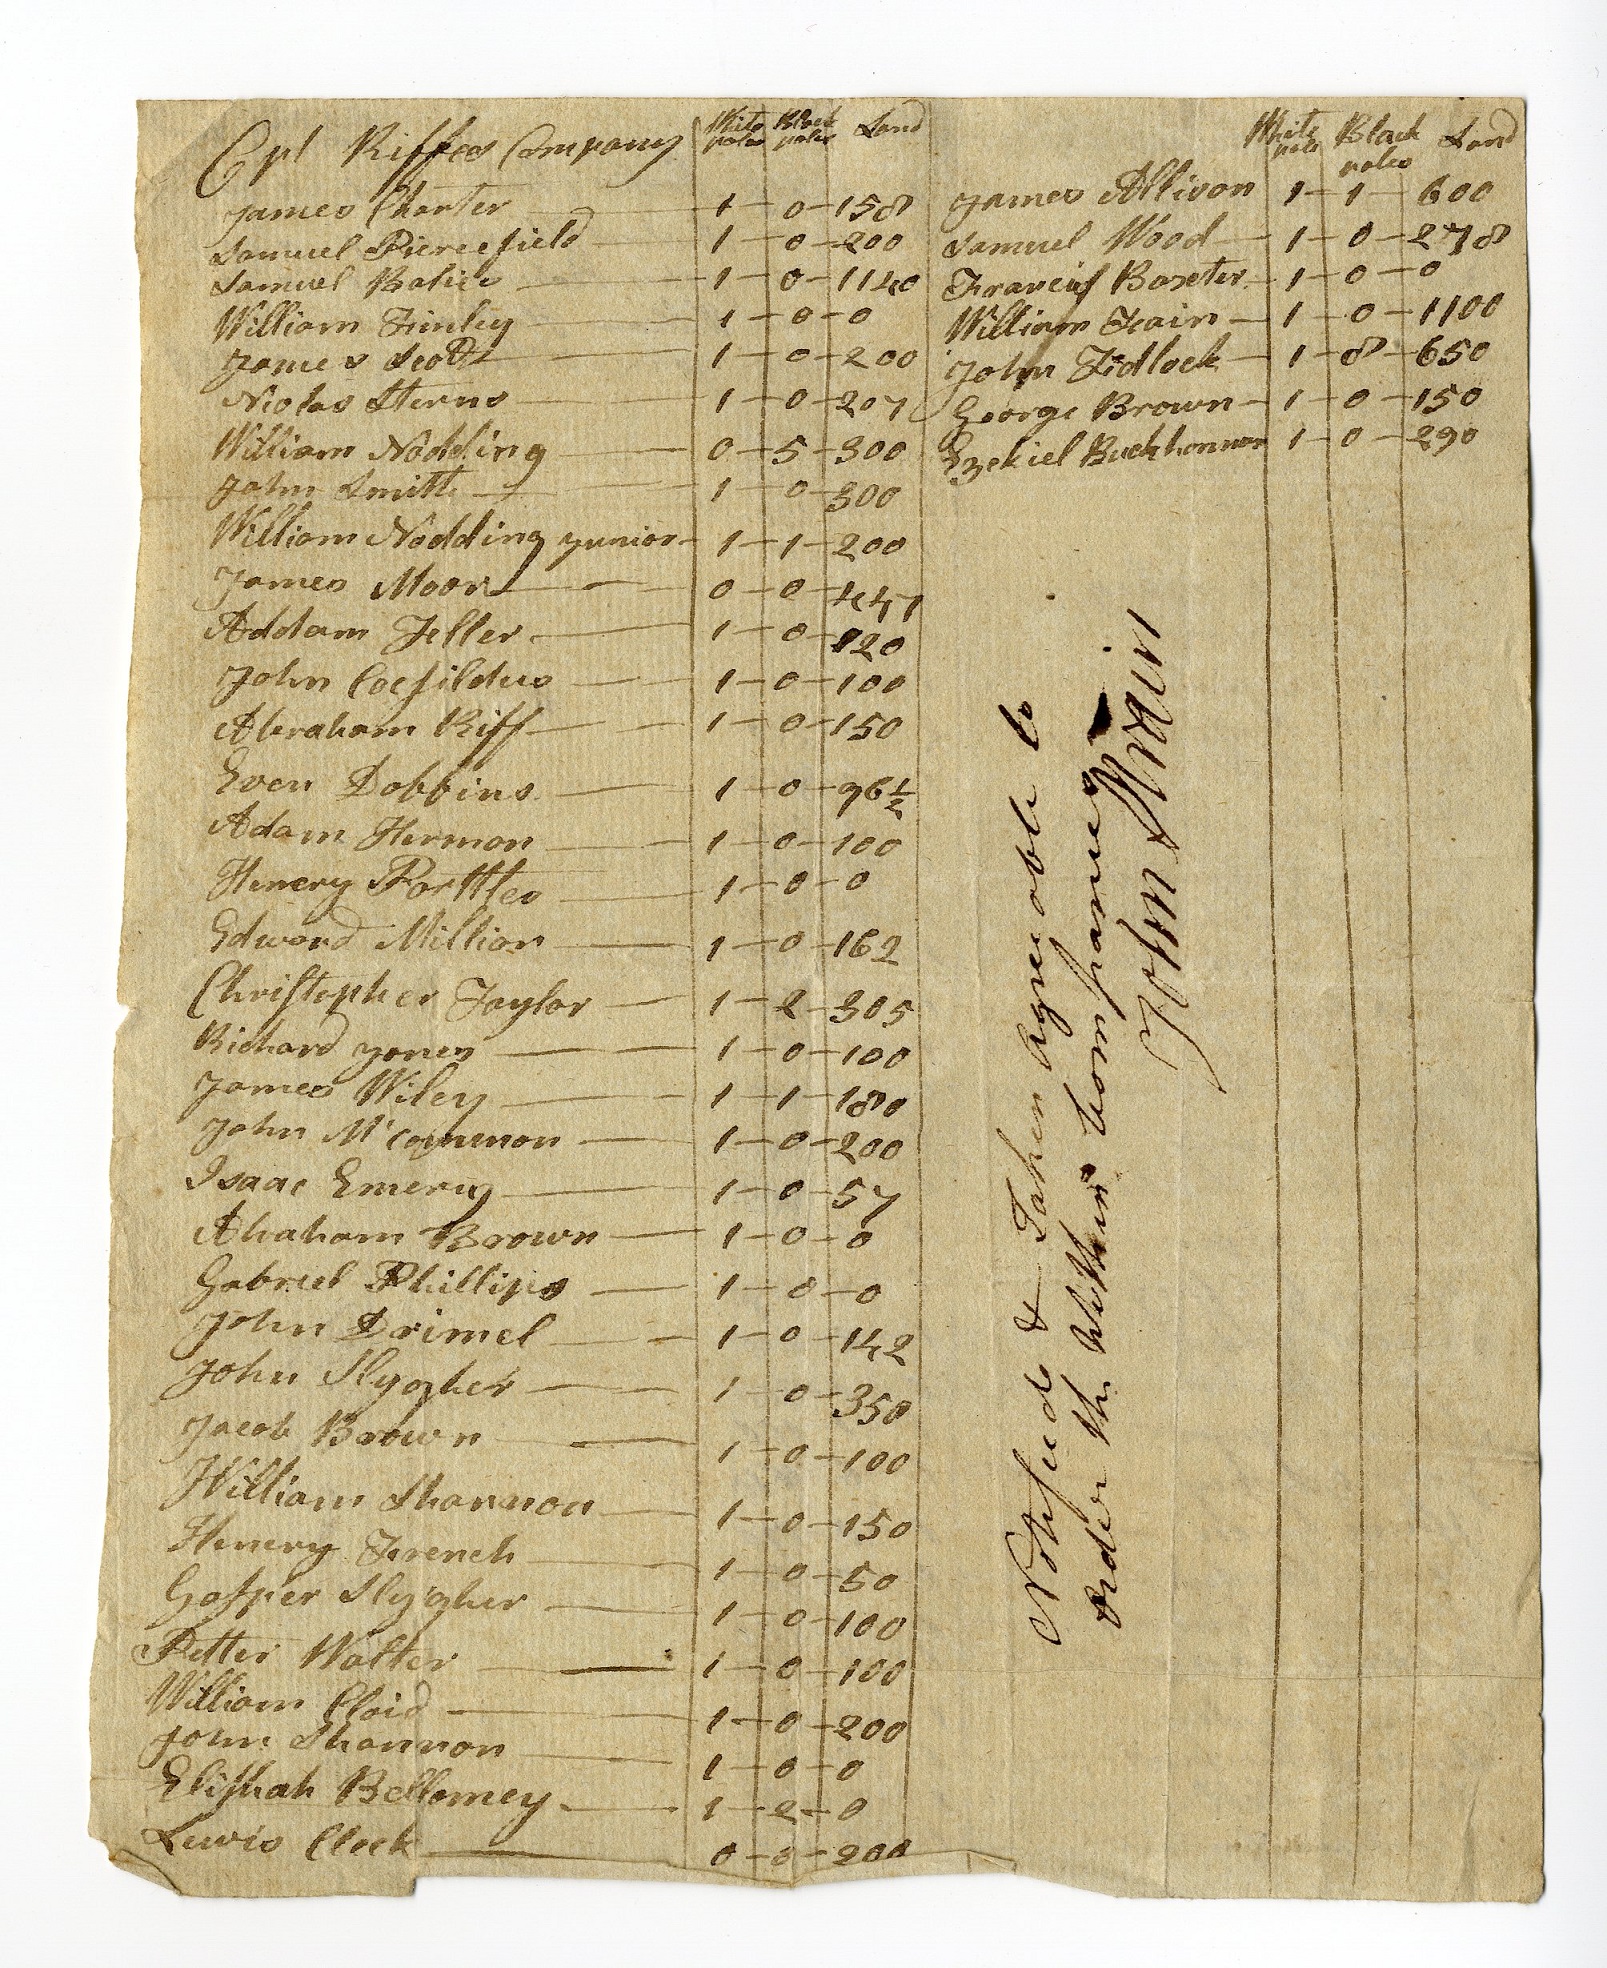 Cpt Riffes Company White poles Black poles Land
James Charter 1-0-158
Samuel Piercefield 1-0-200
Samuel Baliie 1-0-1140
William Finley 1-0-0
James Scott 1-0-200
Nicolas Sterns 1-0-207
William Nodding 0-5-300
John Smith 1-0-300
William Nodding junior 1-1-200
James Moor 0-0-447
Addam Feller 1-0-120
John 1-0-100
Abraham Riff 1-0-150
Even Dobbins 1-0-96 1/2
Adam Hermon 1-0-100
Henery Porttes 1-0-0
Edward Millior 1-0-162
Christopher Taylor 1-2-305
Richard Jones 1-0-100
James Wiley 1-1-180
John McCommon 1-0-200
Isaac Emery 1-0-57
Abraham Brown 1-0-0
Gabriel Phillips 1-0-0
John Drimel 1-0-142
John Slygher 1-0-350
Jacob Brown 1-0-100
William Shannon 1-0-150
Henery French 1-0-50
Gasper Slygher 1-0-100
Petter Walter 1-0-100
William Cloid 1-0-200
John Shannon 1-0-0
Elishah Bellomey 1-2-0
Lewis Clock 0-0-200
White poles Black poles Land
James Allison 1-1-600
Samuel Wood 1-0-278
Francis Baxter 1-0-0
William Fain 1-0-1100
John Tidlock 1-8-650
George Brown 1-0-150
Ezekiel Buckhonnon 1-0-290
Notified & Taken agreeable to
order the within Companey
John Strain